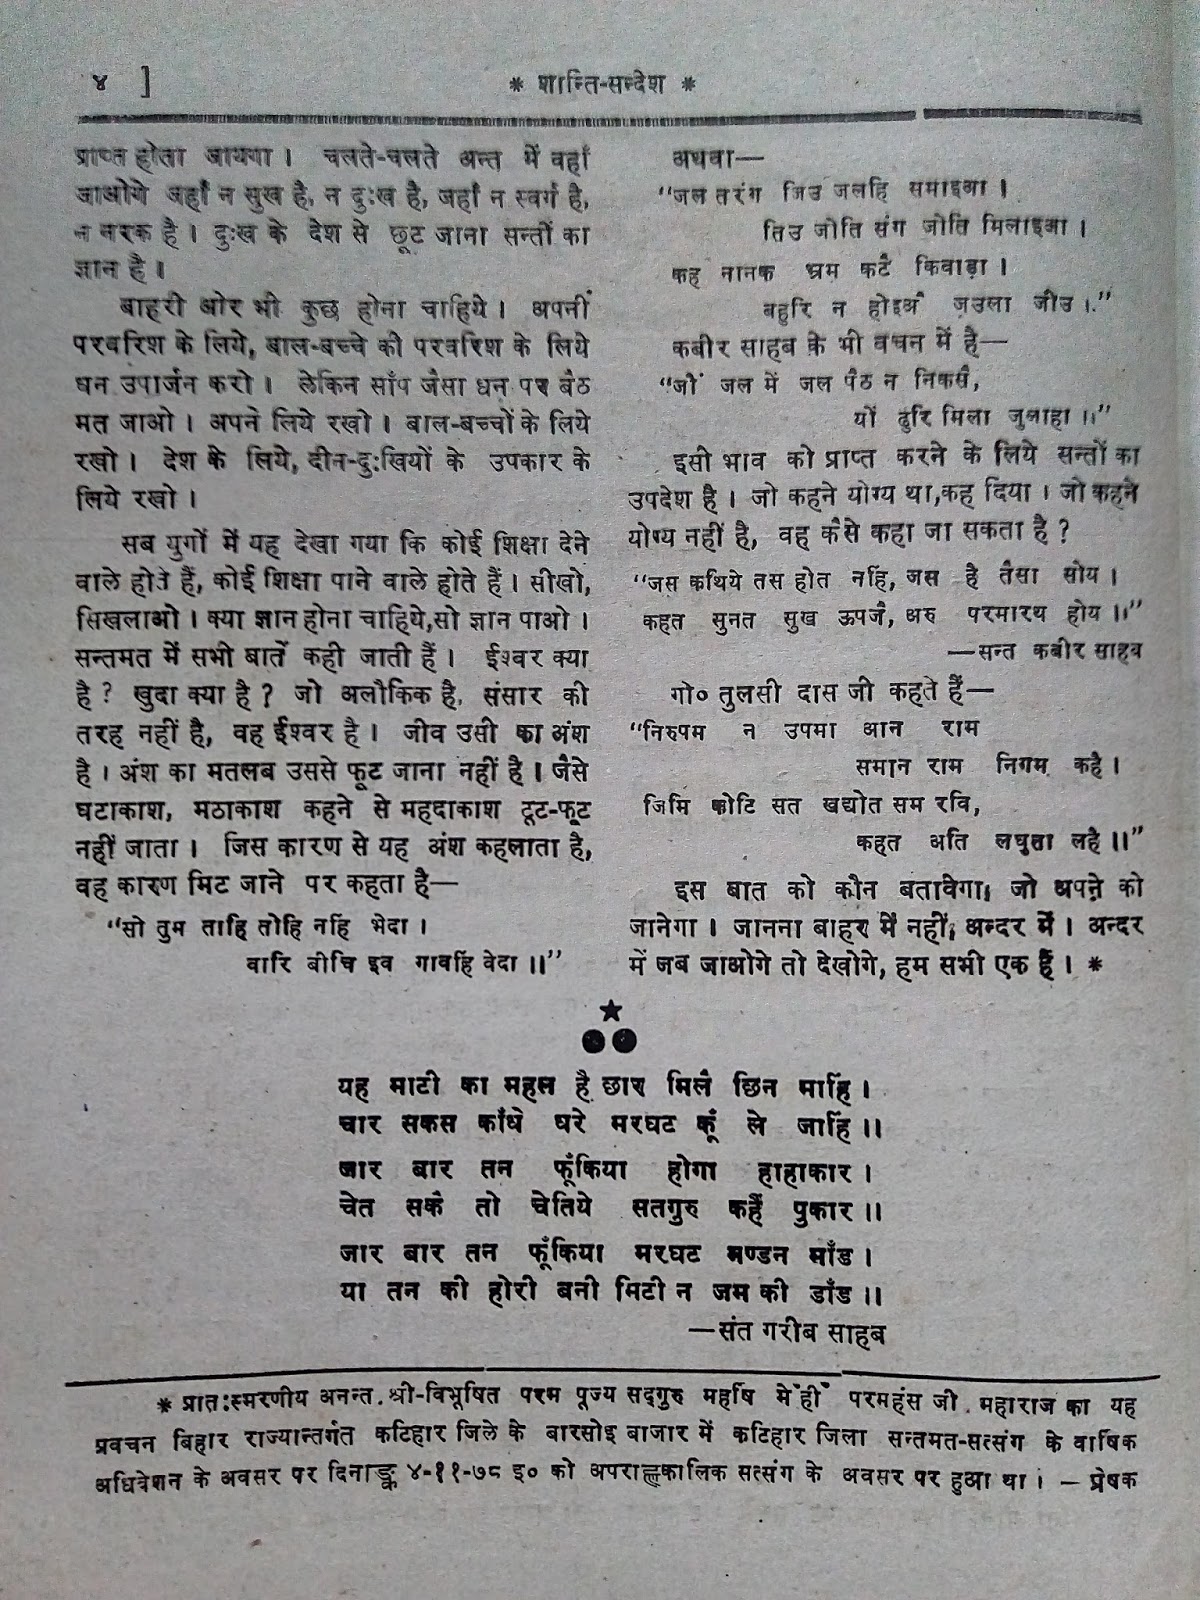 ४ ]
* शान्ति-सन्देश *
प्राप्त होता जायगा । चलते-चलते अन्त में वहाँ
जाओगे जहाँ न सुख है, न दुःख है, जहाँ न स्वर्ग है,
न नरक है । दुःख के देश से छूट जाना सन्तों का
ज्ञान है ।
बाहरी ओर भी कुछ होना चाहिये । अपनी
परवरिश के लिये, बाल-बच्चे की परवरिश के लिये
धन उपार्जन करो । लेकिन साँप जैसा धन पर बैठ
मत जाओ । अपने लिये रखो । बाल-बच्चों के लिये
रखो । देश के लिये, दीन-दुःखियों के उपकार के
लिये रखो ।
सब युगों में यह देखा गया कि कोई शिक्षा देने
वाले होते हैं, कोई शिक्षा पाने वाले होते हैं । सीखो,
सिखलाओ । क्या ज्ञान होना चाहिये,सो ज्ञान पाओ ।
सन्तमत में सभी बातें कही जाती हैं । ईश्वर क्या
है ? खुदा क्या है ? जो अलौकिक है, संसार की
तरह नहीं है, वह ईश्वर है । जीव उसी का अंश
है । अंश का मतलब उससे फूट जाना नहीं है । जैसे
घटाकाश, मठाकाश कहने से महदाकाश टूट-फूट
नहीं जाता । जिस कारण से यह अंश कहलाता है,
वह कारण मिट जाने पर कहता है—
“सो तुम ताहि तोहि नहिं भेदा ।
वारि बीचि इव गावहिं वेदा ॥”
अथवा—
“जल तरंग जिउ जलहि समाइआ ।
तिउ जोति संग जोति मिलाइआ ।
कह नानक भ्रम कटै किवाड़ा ।
बहुरि न होइअै जउला जीउ ।”
कबीर साहब के भी वचन में है—
“जों जल में जल पैठ न निकसै,
यों ढुरि मिला जुलाहा ॥”
इसी भाव को प्राप्त करने के लिये सन्तों का
उपदेश है । जो कहने योग्य था,कह दिया । जो कहने
योग्य नहीं है, वह कैसे कहा जा सकता है ?
“जस कथिये तस होत नहिं, जस है तैसा सोय ।
कहत सुनत सुख ऊपजै, अरु परमारथ होय ॥”
—सन्त कबीर साहब
गो० तुलसी दास जी कहते हैं—
“निरुपम न उपमा आन राम
समान राम निगम कहै ।
जिमि कोटि सत खद्योत सम रवि,
कहत अति लघुता लहै ॥”
इस बात को कौन बतावेगा, जो अपने को
जानेगा । जानना बाहर में नहीं, अन्दर में । अन्दर
में जब जाओगे तो देखोगे, हम सभी एक हैं । *
यह माटी का महल है छार मिलै छिन माहिं ।
चार सकस काँधे धरे मरघट कूँ ले जाहिं ॥
जार बार तन फूँकिया होगा हाहाकार ।
चेत सकै तो चेतिये सतगुरु कहैं पुकार ॥
जार बार तन फूँकिया मरघट मण्डन माँड ।
या तन की होरी बनी मिटी न जम की डाँड ॥
—संत गरीब साहब
* प्रातःस्मरणीय अनन्त श्री-विभूषित परम पूज्य सद्गुरु महर्षि मेँहीँ परमहंस जी महाराज का यह
प्रवचन बिहार राज्यान्तर्गत कटिहार जिले के बारसोइ बाजार में कटिहार जिला सन्तमत-सत्संग के वार्षिक
अधिवेशन के अवसर पर दिनाङ्क ४-११-७८ इ० को अपराह्णकालिक सत्संग के अवसर पर हुआ था । — प्रेषक